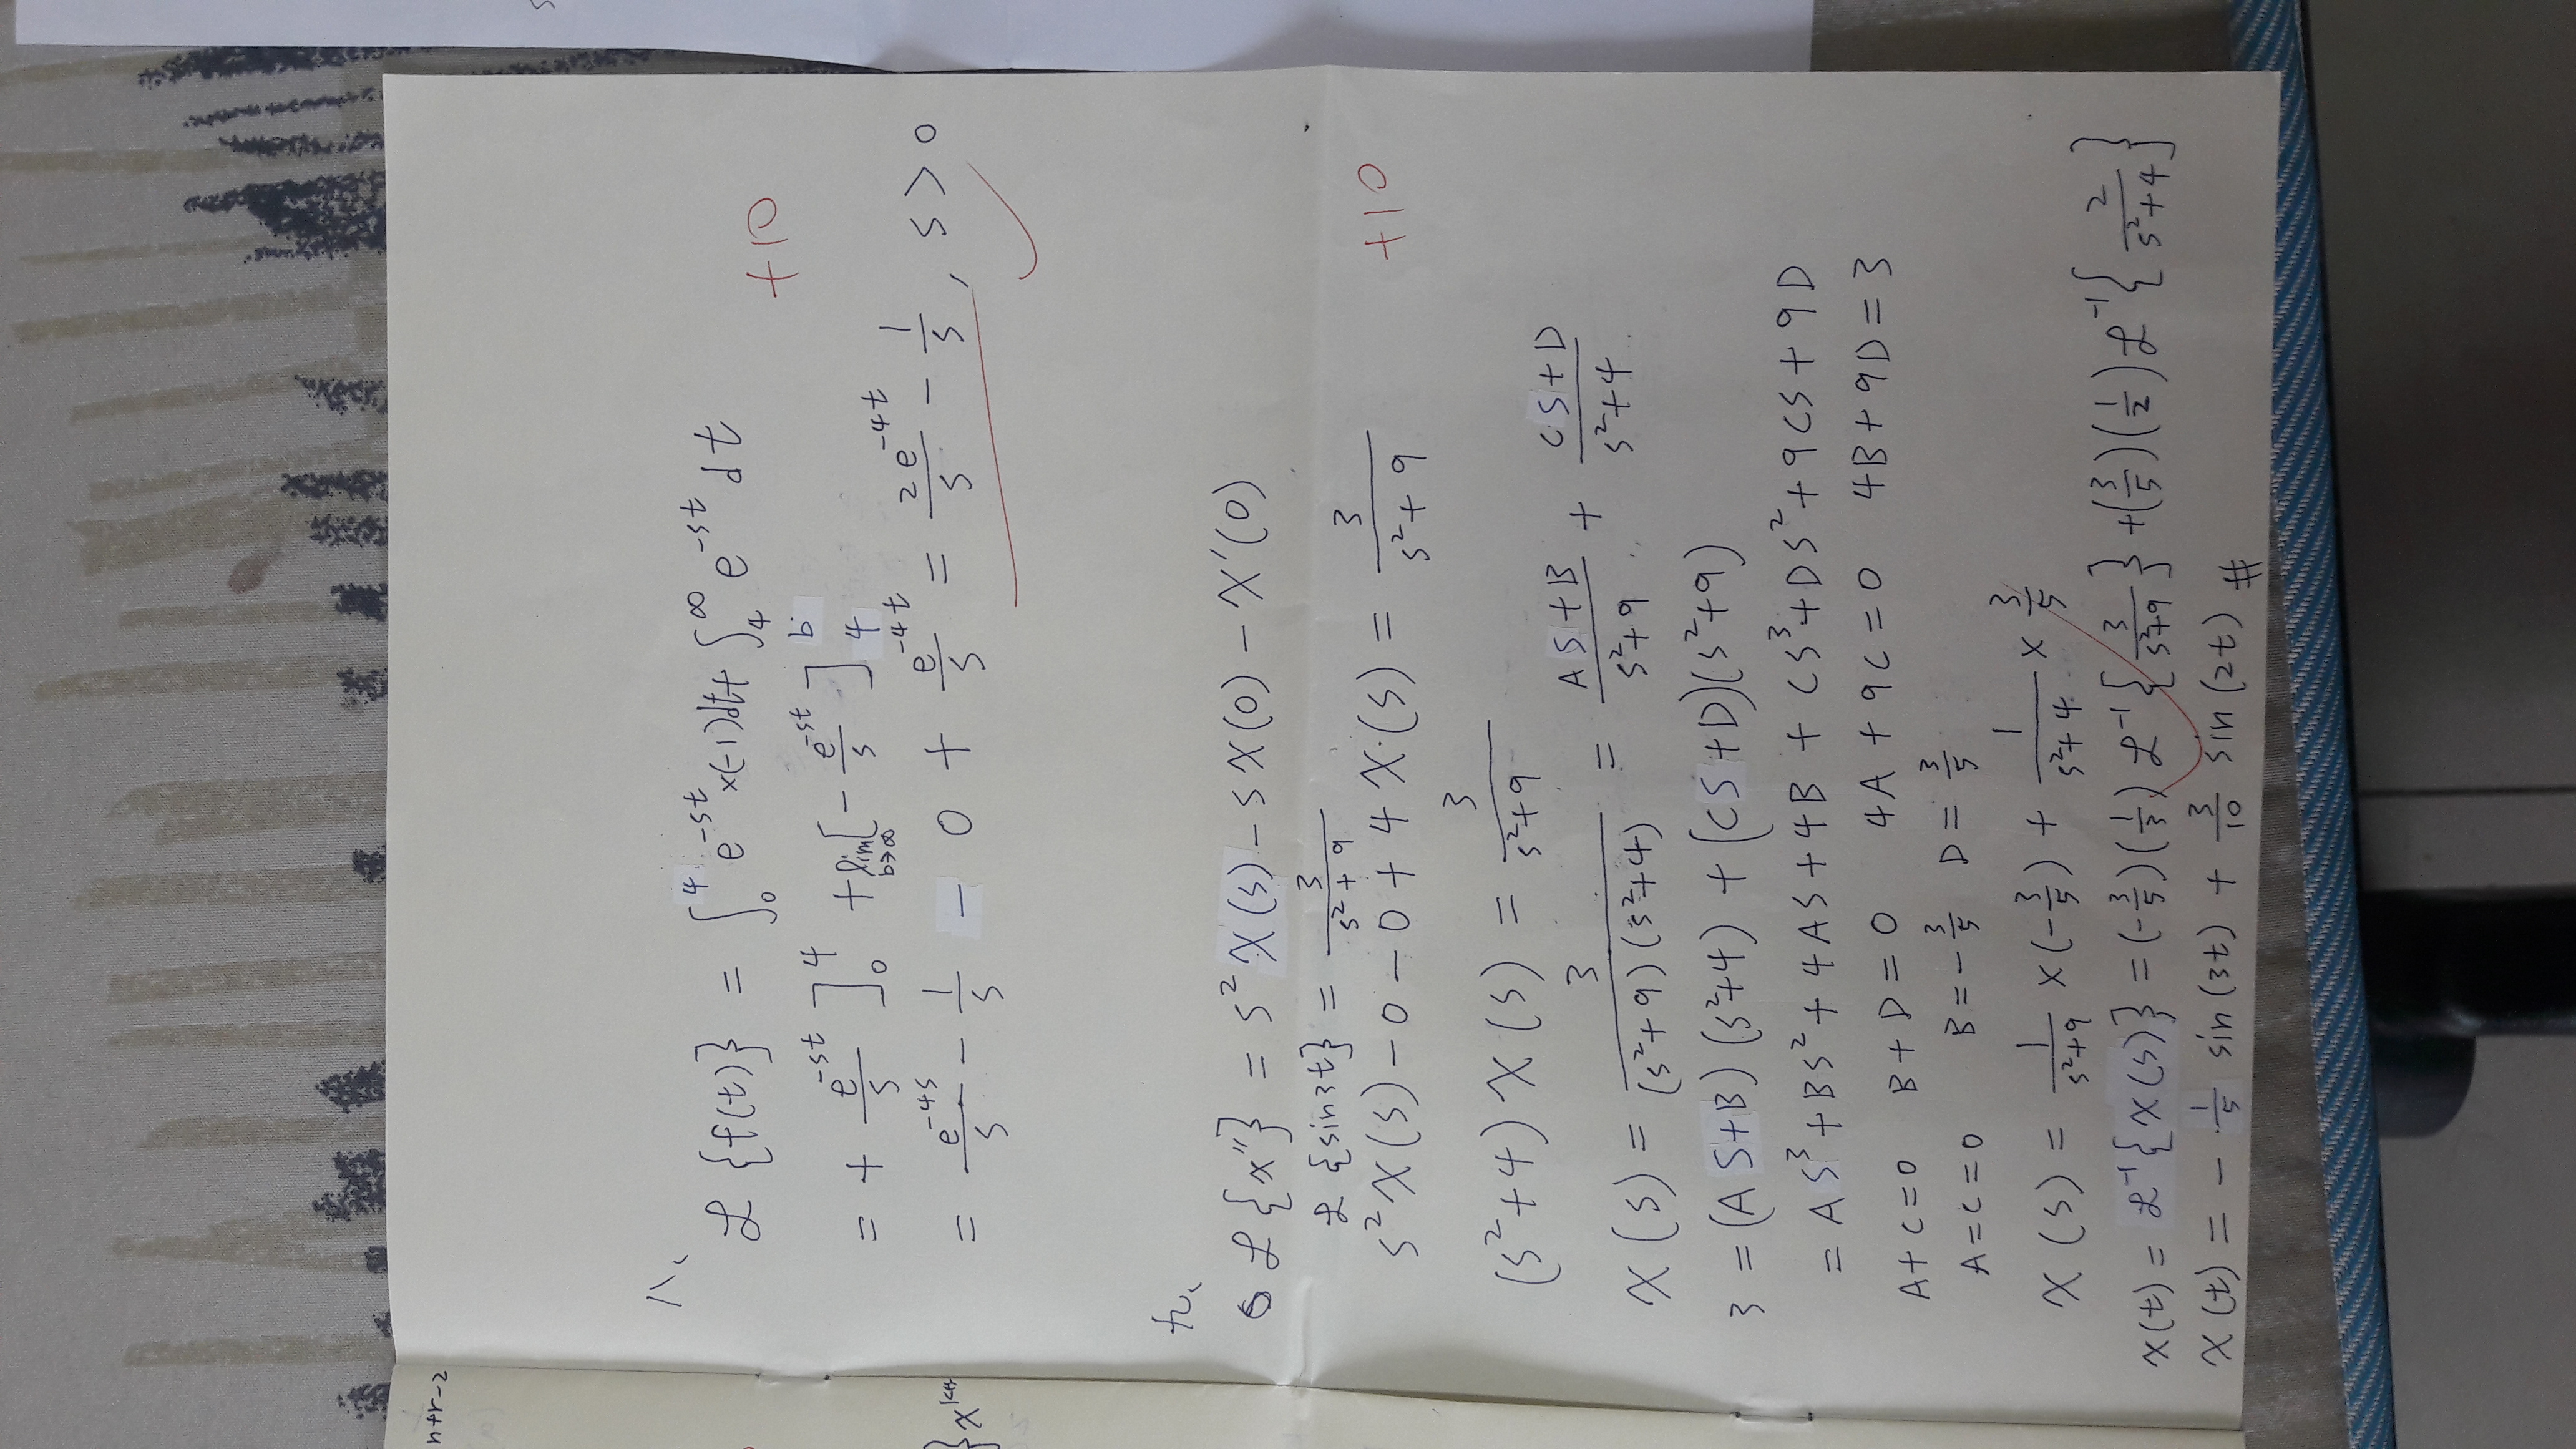 n+r-2
八、
ℒ{f(t)} = ∫₀⁴ e^{-st}×(-1)dt + ∫₄^∞ e^{-st} dt
+10
= + e^{-st}/s ]₀⁴ + lim_{b→∞} [ - e^{-st}/s ]₄^b
= e^{-4s}/s - 1/s - 0 + e^{-4t}/s = 2e^{-4t}/s - 1/s , s > 0
九、
ℒ{x''} = s²X(s) - sX(0) - X'(0)
ℒ{sin3t} = 3/(s²+9)
s²X(s) - 0 - 0 + 4X(s) = 3/(s²+9)
+10
(s²+4)X(s) = 3/(s²+9)
X(s) = 3/((s²+9)(s²+4)) = (AS+B)/(s²+9) + (CS+D)/(s²+4)
3 = (AS+B)(s²+4) + (CS+D)(s²+9)
= AS³+BS²+4AS+4B + CS³+DS²+9CS+9D
A+C=0 B+D=0 4A+9C=0 4B+9D=3
A=C=0 B=-3/5 D=3/5
X(s) = 1/(s²+9) ×(-3/5) + 1/(s²+4) × 3/5
x(t) = ℒ⁻¹{X(s)} = (-3/5)(1/3) ℒ⁻¹{3/(s²+9)} + (3/5)(1/2) ℒ⁻¹{2/(s²+4)}
x(t) = - 1/5 sin(3t) + 3/10 sin(2t) #